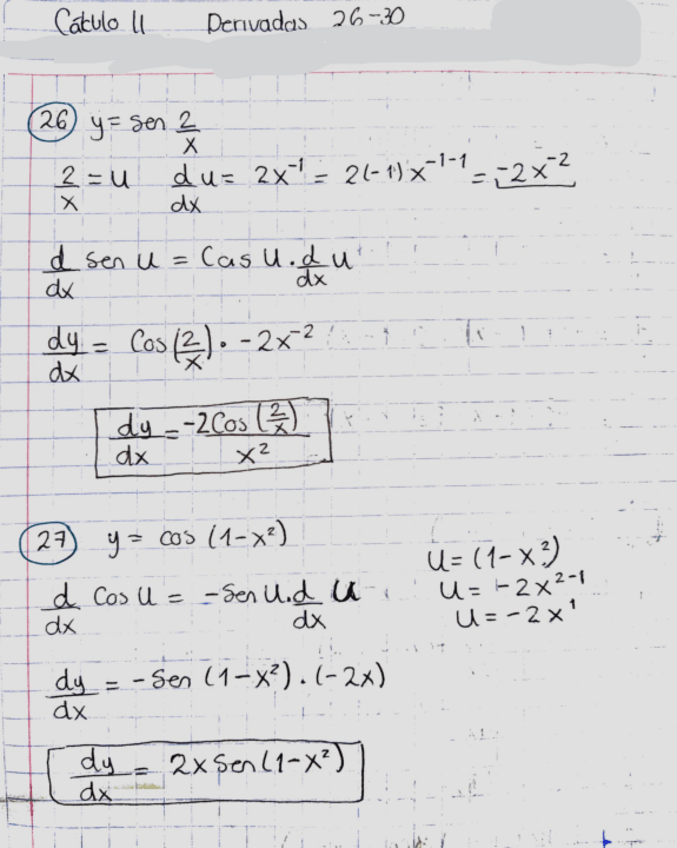 Cálculo II Derivadas 26-30
26 y = sen 2/x
2/x = u d/dx u = 2x⁻¹ = 2(-1)x⁻¹⁻¹ = -2x⁻²
d/dx sen u = Cos u . d/dx u
dy/dx = Cos(2/x) · -2x⁻²
dy/dx = -2Cos(2/x) / x²
27 y = cos (1-x²)
u = (1-x²)
d/dx Cos u = -Sen u . d/dx u
u = -2x²⁻¹
u = -2x¹
dy/dx = -Sen (1-x²) . (-2x)
dy/dx = 2x Sen (1-x²)